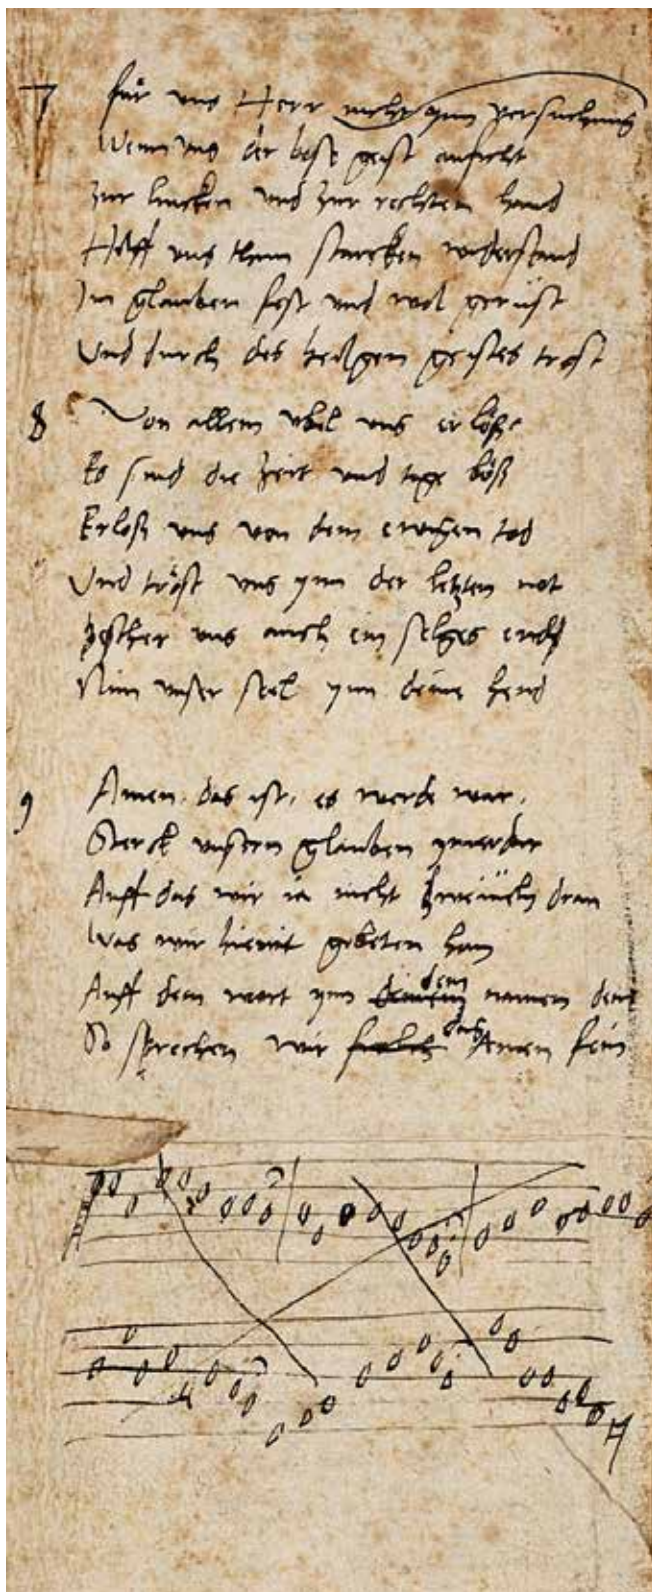 7 Für uns Herr nicht ynn versuchung
Wenn uns der bose geist anficht
Zur lincken und zur rechten hand
Hilff uns thun starcken widerstand
Im glauben fest und wol gerüst
Und durch des heilgen geistes trost
8 Von allem ubel uns erlöse
Es sind die zeit und tage böß
Erloß uns von dem ewigen tod
Und tröst uns ynn der letzten not
Bescher uns auch ein seliges end
Nim unser seel ynn deine hend
9 Amen, das ist, es werde war,
Sterck unsern glauben ymerdar
Auff das wir ia nicht zweiueln dran
Was wir hiemit gebeten han
Auff dein wort ynn dem namen dein
So sprechen wir das Amen fein